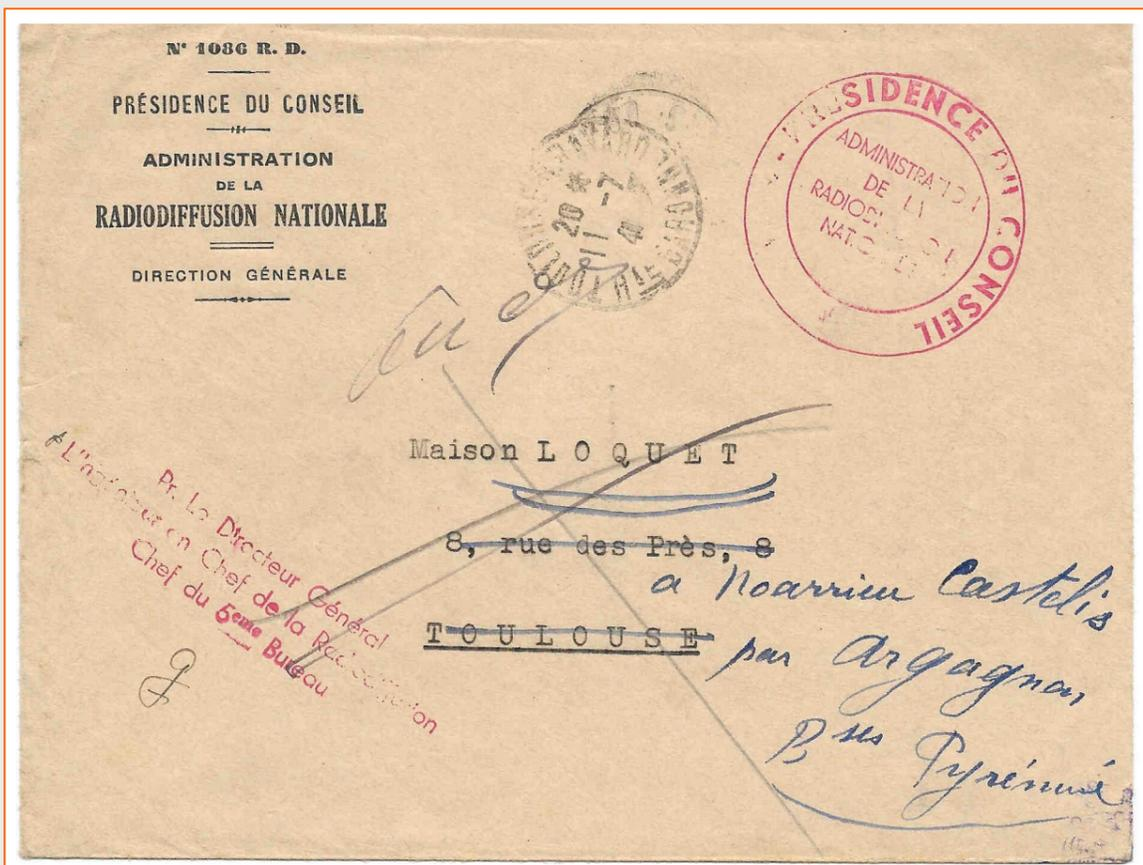 N° 1086 R. D.
PRÉSIDENCE DU CONSEIL
ADMINISTRATION
DE LA
RADIODIFFUSION NATIONALE
DIRECTION GÉNÉRALE
TOULOUSE
Hte GARONNE
20 *
11 -7
41
PRESIDENCE DU CONSEIL
ADMINISTRATION
DE LA
RADIODIFFUSION
NATIONALE
Maison LOQUET
8, rue des Près, 8
TOULOUSE
Pr. Le Directeur Général
L'Ingénieur en Chef de la Radiodiffusion
Chef du 5eme Bureau
a Noarrieu Castelis
par Argagnon
Bses Pyrénné